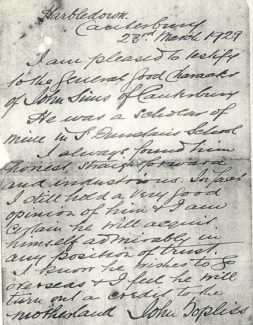 Harbledown.
Canterbury
23rd March 1929
I am pleased to testify
to the general good character
of John Sims of Canterbury
He was a scholar of
mine in S. Dunstan's School
I always found him
honest, straightforward
and industrious. In fact
I still hold a very good
opinion of him & I am
certain he will acquit
himself admirably in
any position of trust.
I know he wishes to go
overseas & I feel he will
turn out a credit to the
motherland John Topliss